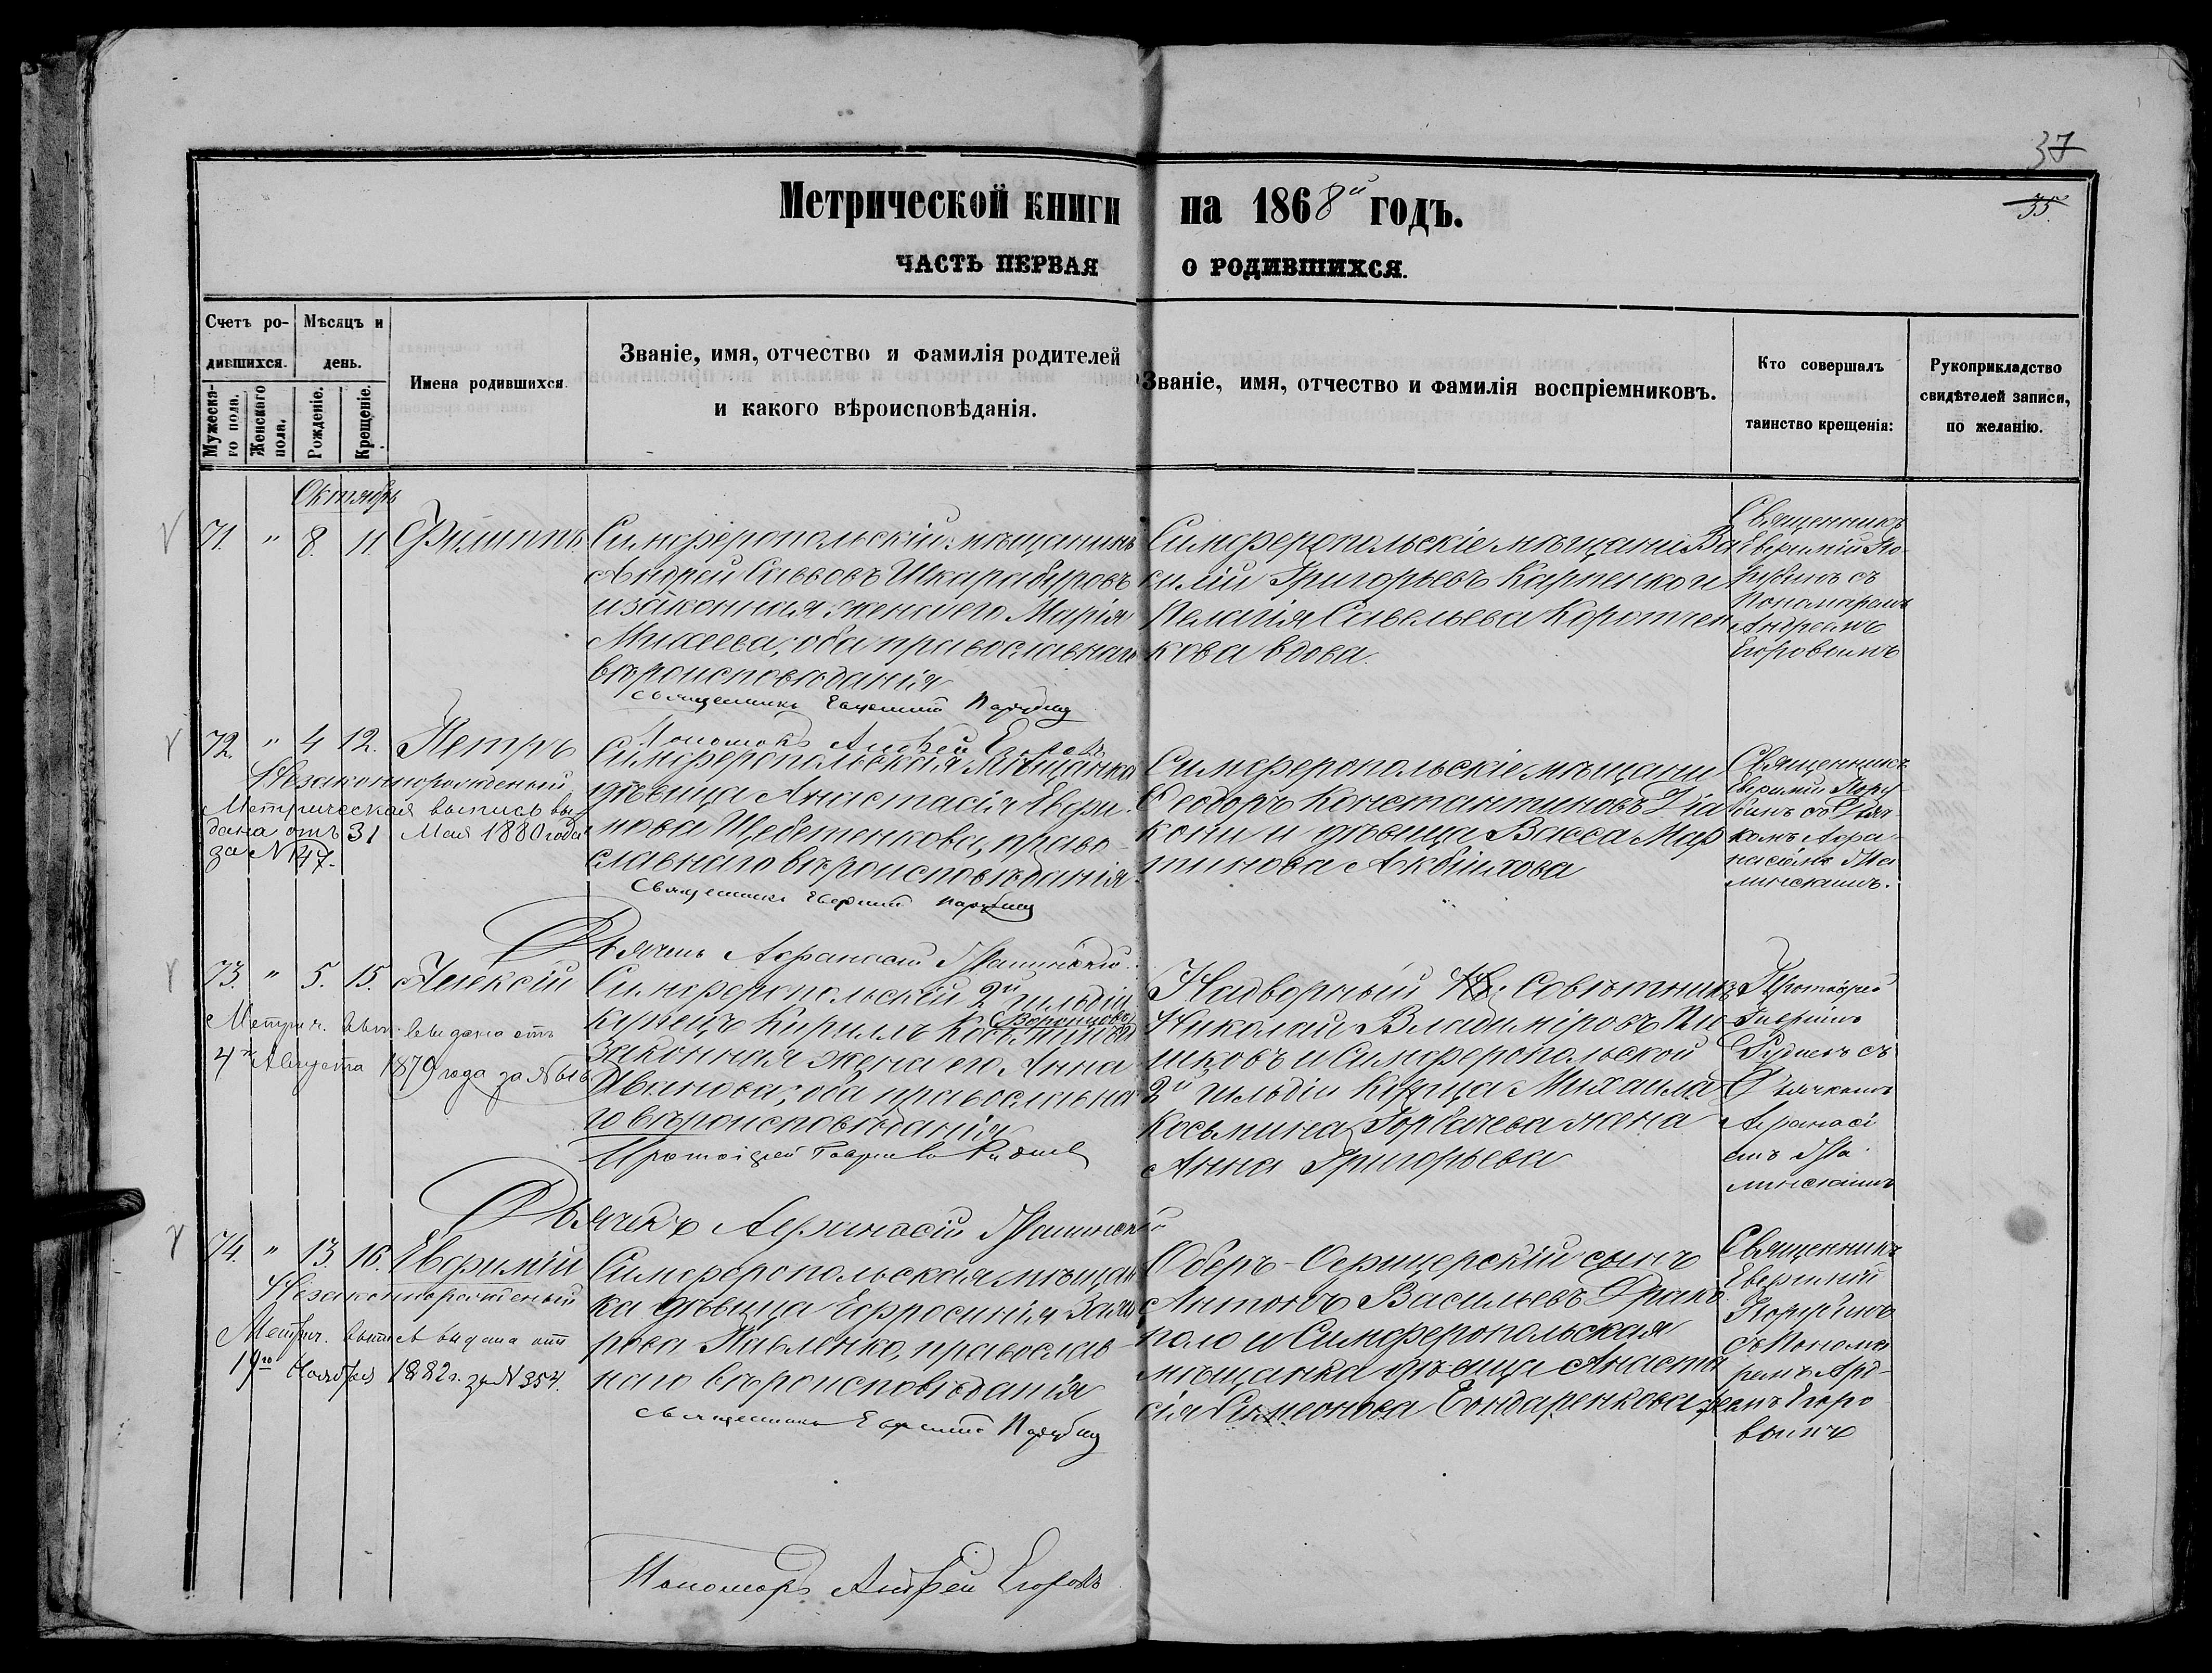 37
35.
Метрической книги на 1868й годъ.
ЧАСТЬ ПЕРВАЯ О РОДИВШИХСЯ.
Счетъ ро-
дившихся.
Мужеска-
го пола.
Женскаго
пола.
Мѣсяцъ и
день.
Рожденіе.
Крещеніе.
Имена родившихся.
Званіе, имя, отчество и фамилія родителей
и какого вѣроисповѣданія.
Званіе, имя, отчество и фамилія воспріемниковъ.
Кто совершалъ
таинство крещенія:
Рукоприкладство
свидѣтелей записи,
по желанію.
Октябрь
71. " 8. 11. Филиппъ
Симферопольскій мѣщанинъ
Андрей Саввовъ Шкарабуровъ
и законная жена его Марія
Моисеева, оба православнаго
вѣроисповѣданія
Священникъ Евфимій
Пономарь Андрей Егоровъ
Симферопольскіе мѣщани Ва
силій Григорьевъ Карпенко и
Пелагія Савельева Коротчен
кова вдова.
Священникъ
Евфимій
съ
Пономаремъ
Андреемъ
Егоровымъ
72. " 4 12. Петръ
Незаконнорожденый
Метрическая выпись вы
дана отъ 31 Мая 1880 года
за N 147.
Симферопольская мѣщанка
дѣвица Анастасія Евфи
мова Щебетенкова, право
славнаго вѣроисповѣданія
Священникъ Евфимій
Дьячекъ Афанасій
Симферопольскіе мѣщани
Ѳеодоръ Константиновъ Діа
кони и дѣвица Васса Мар
тинова
Священникъ
Евфимій
съ Дьяч
комъ Афа
насіемъ
73. " 5. 15. Алексій
Метрич. вып. выдана отъ
4го Августа 1879 года за N
Симферопольскій 2й гильдіи
купецъ Кирилъ Козьминъ
законная жена его Анна
Иванова, оба православна
го вѣроисповѣданія
Протоіерей Гавріилъ Рудневъ
Дьячекъ Афанасій
Надворный Совѣтникъ
Николай Владиміровъ
и Симферопольской
2й гильдіи Купца Михаила
Косьмина Горбачева жена
Анна Григорьева
Протоіерей
Гавріилъ
Рудневъ съ
Дьячкомъ
Афанасі
емъ
74. " 13. 16. Евфимій
Незаконнорожденый
Метрич. выпись выдана отъ
19го Ноября 1882 г. за N 354.
Симферопольская мѣщан
ка дѣвица Ефросинія
Павленко, православ
наго вѣроисповѣданія
Священникъ Евфимій
Пономарь Андрей Егоровъ
Оберъ-Офицерскій сынъ
Антонъ Васильевъ
и Симферопольская
мѣщанка дѣвица Анаста
сія Симеонова Бондаренкова
Священникъ
Евфимій
съ Понома
ремъ Анд
реемъ Егоро
вымъ